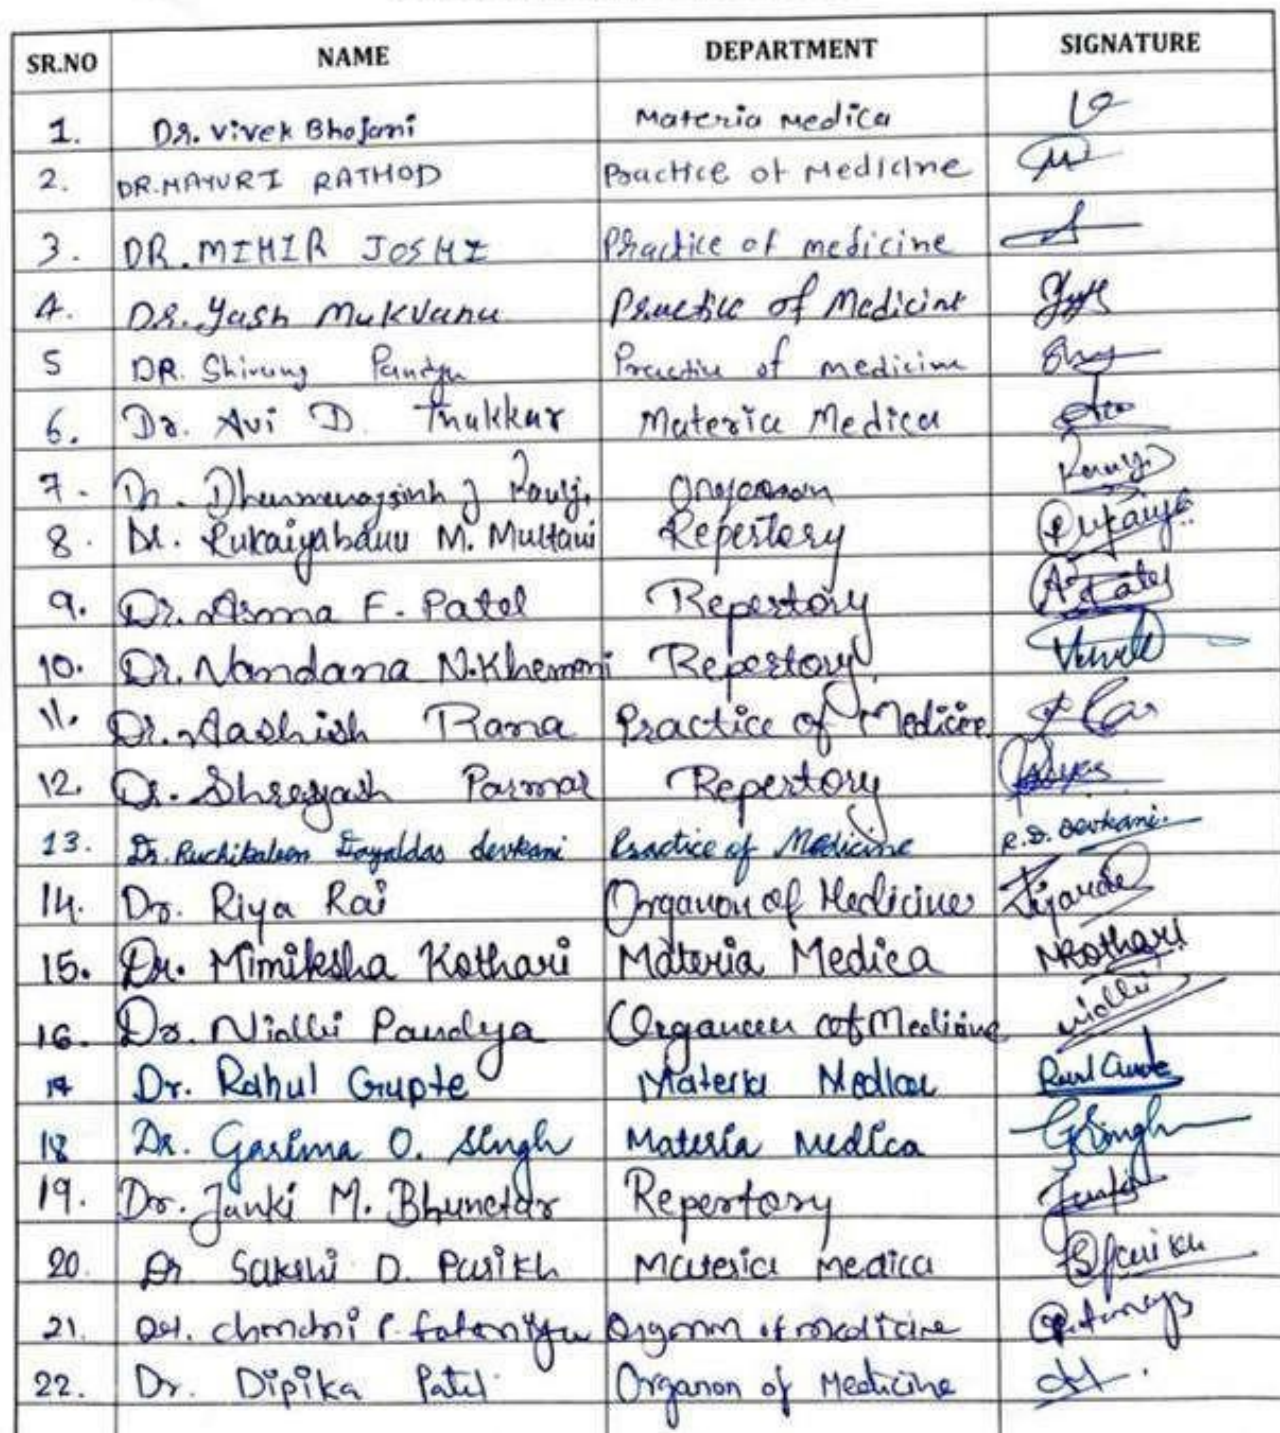 SR.NO NAME DEPARTMENT SIGNATURE
1. Dr. Vivek Bhojani Materia Medica
2. DR.MAYURI RATHOD Practice of Medicine
3. DR.MIHIR JOSHI Practice of medicine
4. Dr. Yash Mukvana Practice of Medicine
5 DR. Shivang Pandya Practice of medicine
6. Dr. Avi D. Thakkar Materia Medica
7. Dr. J Organon
8. Dr. Rukaiyabanu M. Multani Repertory
9. Dr. Asma F. Patel Repertory A Patel
10. Dr. Nandana N. Khemani Repertory
11. Dr. Aashish Rana Practice of Medicine
12. Dr. Shreyash Parmar Repertory
13. Dr. Ruchikaben Dayaldas devkani Practice of Medicine R.D. Devkani.
14. Dr. Riya Rai Organon of Medicine
15. Dr. Mimiksha Kothari Materia Medica MKothari
16. Dr. Nidhi Pandya Organon of Medicine Nidhi
17 Dr. Rahul Gupte Materia Medica
18 Dr. Garima O. Singh Materia Medica GSingh
19. Dr. Janki M. Repertory Janki
20. Dr Sakshi D. Parikh Materia medica SParikh
21. Dr. Chandni P. Organon of medicine
22. Dr. Dipika Patel Organon of Medicine